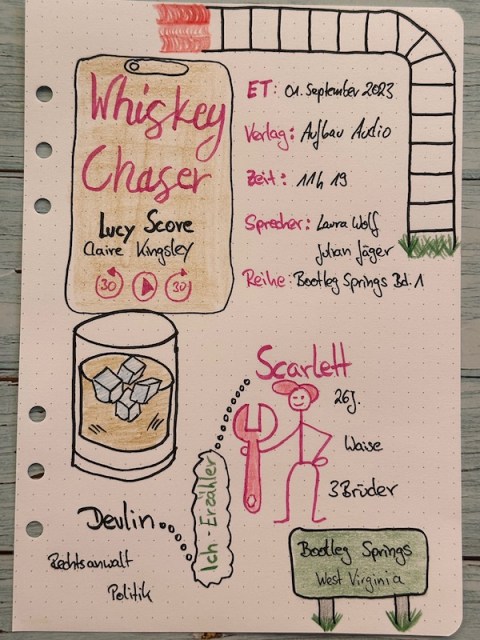 Whiskey
Chaser
Lucy Score
Claire Kingsley
30 30
ET: 01. September 2023
Verlag: Aufbau Audio
Zeit: 11h 19
Sprecher: Laura Wolf
Julian Jäger
Reihe: Bootleg Springs Bd. 1
Scarlett
26J.
Waise
3 Brüder
Ich-Erzähler
Devlin
Rechtsanwalt
Politik
Bootleg Springs
West Virginia